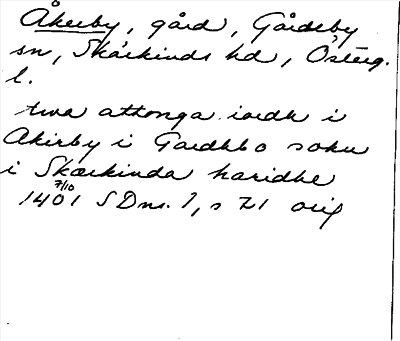 Åkerby, gård, Gårdeby
sn, Skärkinds hd, Österg.
l.
twa attonga iordh i
Akirby i Gardhbo sokn
i Skærkinda hæridhe
1401 7/10 SDns. 1, s 71 orig